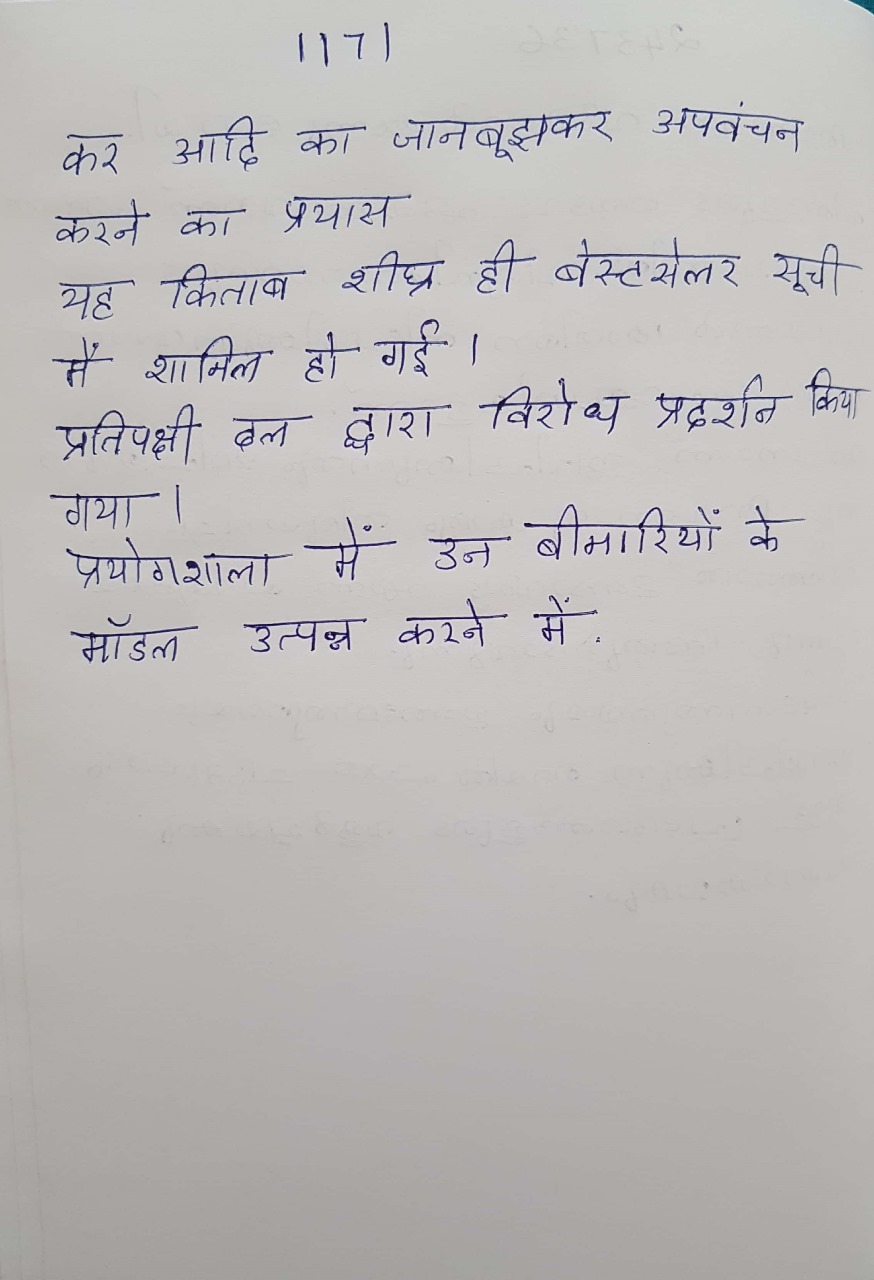 1171
कर आदि का जानबूझकर अपवंचन
करने का प्रयास
यह किताब शीघ्र ही बेस्टसेलर सूची
में शामिल हो गई ।
प्रतिपक्षी दल द्वारा विरोध प्रदर्शन किया
गया ।
प्रयोगशाला में उन बीमारियों के
मॉडल उत्पन्न करने में.